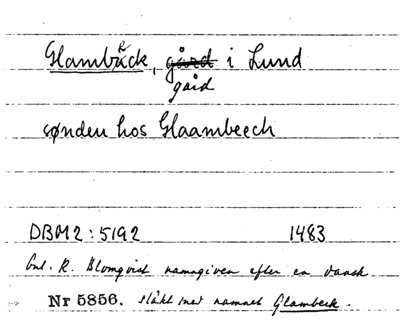 Glambäck, gård i Lund
gård
sønden hos Glaambeech
DBM2:5192 1483
Enl. R. Blomqvist namngiven efter en dansk
Nr 5856. släkt med namnet Glambeck.